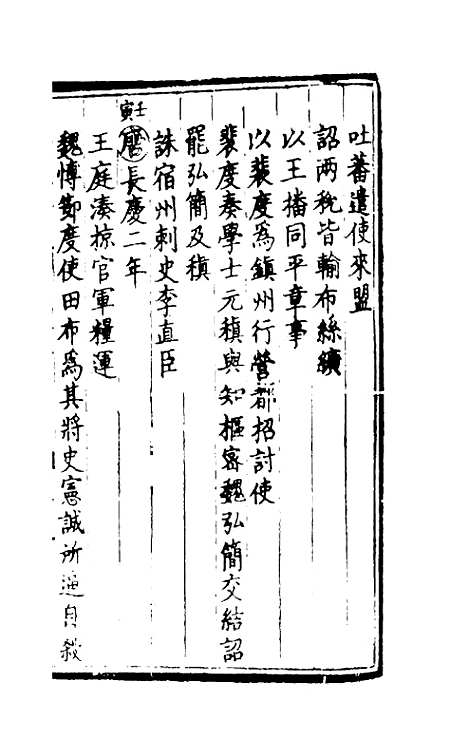 吐蕃遣使來盟
詔两稅皆輸布絲纊
以王播同平章事
以裴度爲鎮州行營都招討使
裴度奏學士元稹與知樞密魏弘簡交結詔
罷弘簡及稹
誅宿州刺史李直臣
壬寅
唐長慶二年
王庭湊掠官軍糧運
魏博節度使田布爲其將史憲誠所逼自殺